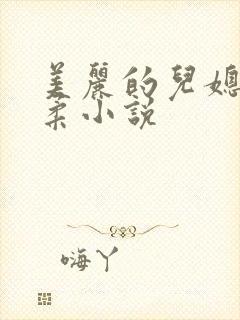 美麗的兒媳
柔小説
嗨丫